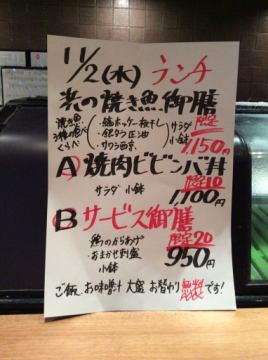 11/2(水) ランチ
炭の焼き魚御膳
焼き魚
3種の食べ
くらべ
・縞ホッケ一夜干し
・銀ダラ正油
・サワラ西京
サラダ
小鉢
限定
1,150円
A 焼肉ビビンバ丼
サラダ 小鉢
限定10
1,100円
B サービス御膳
鶏のからあげ
おまかせ刺盛
小鉢
限定20
950円
ご飯、お味噌汁 大盛 お替わり 無料です!